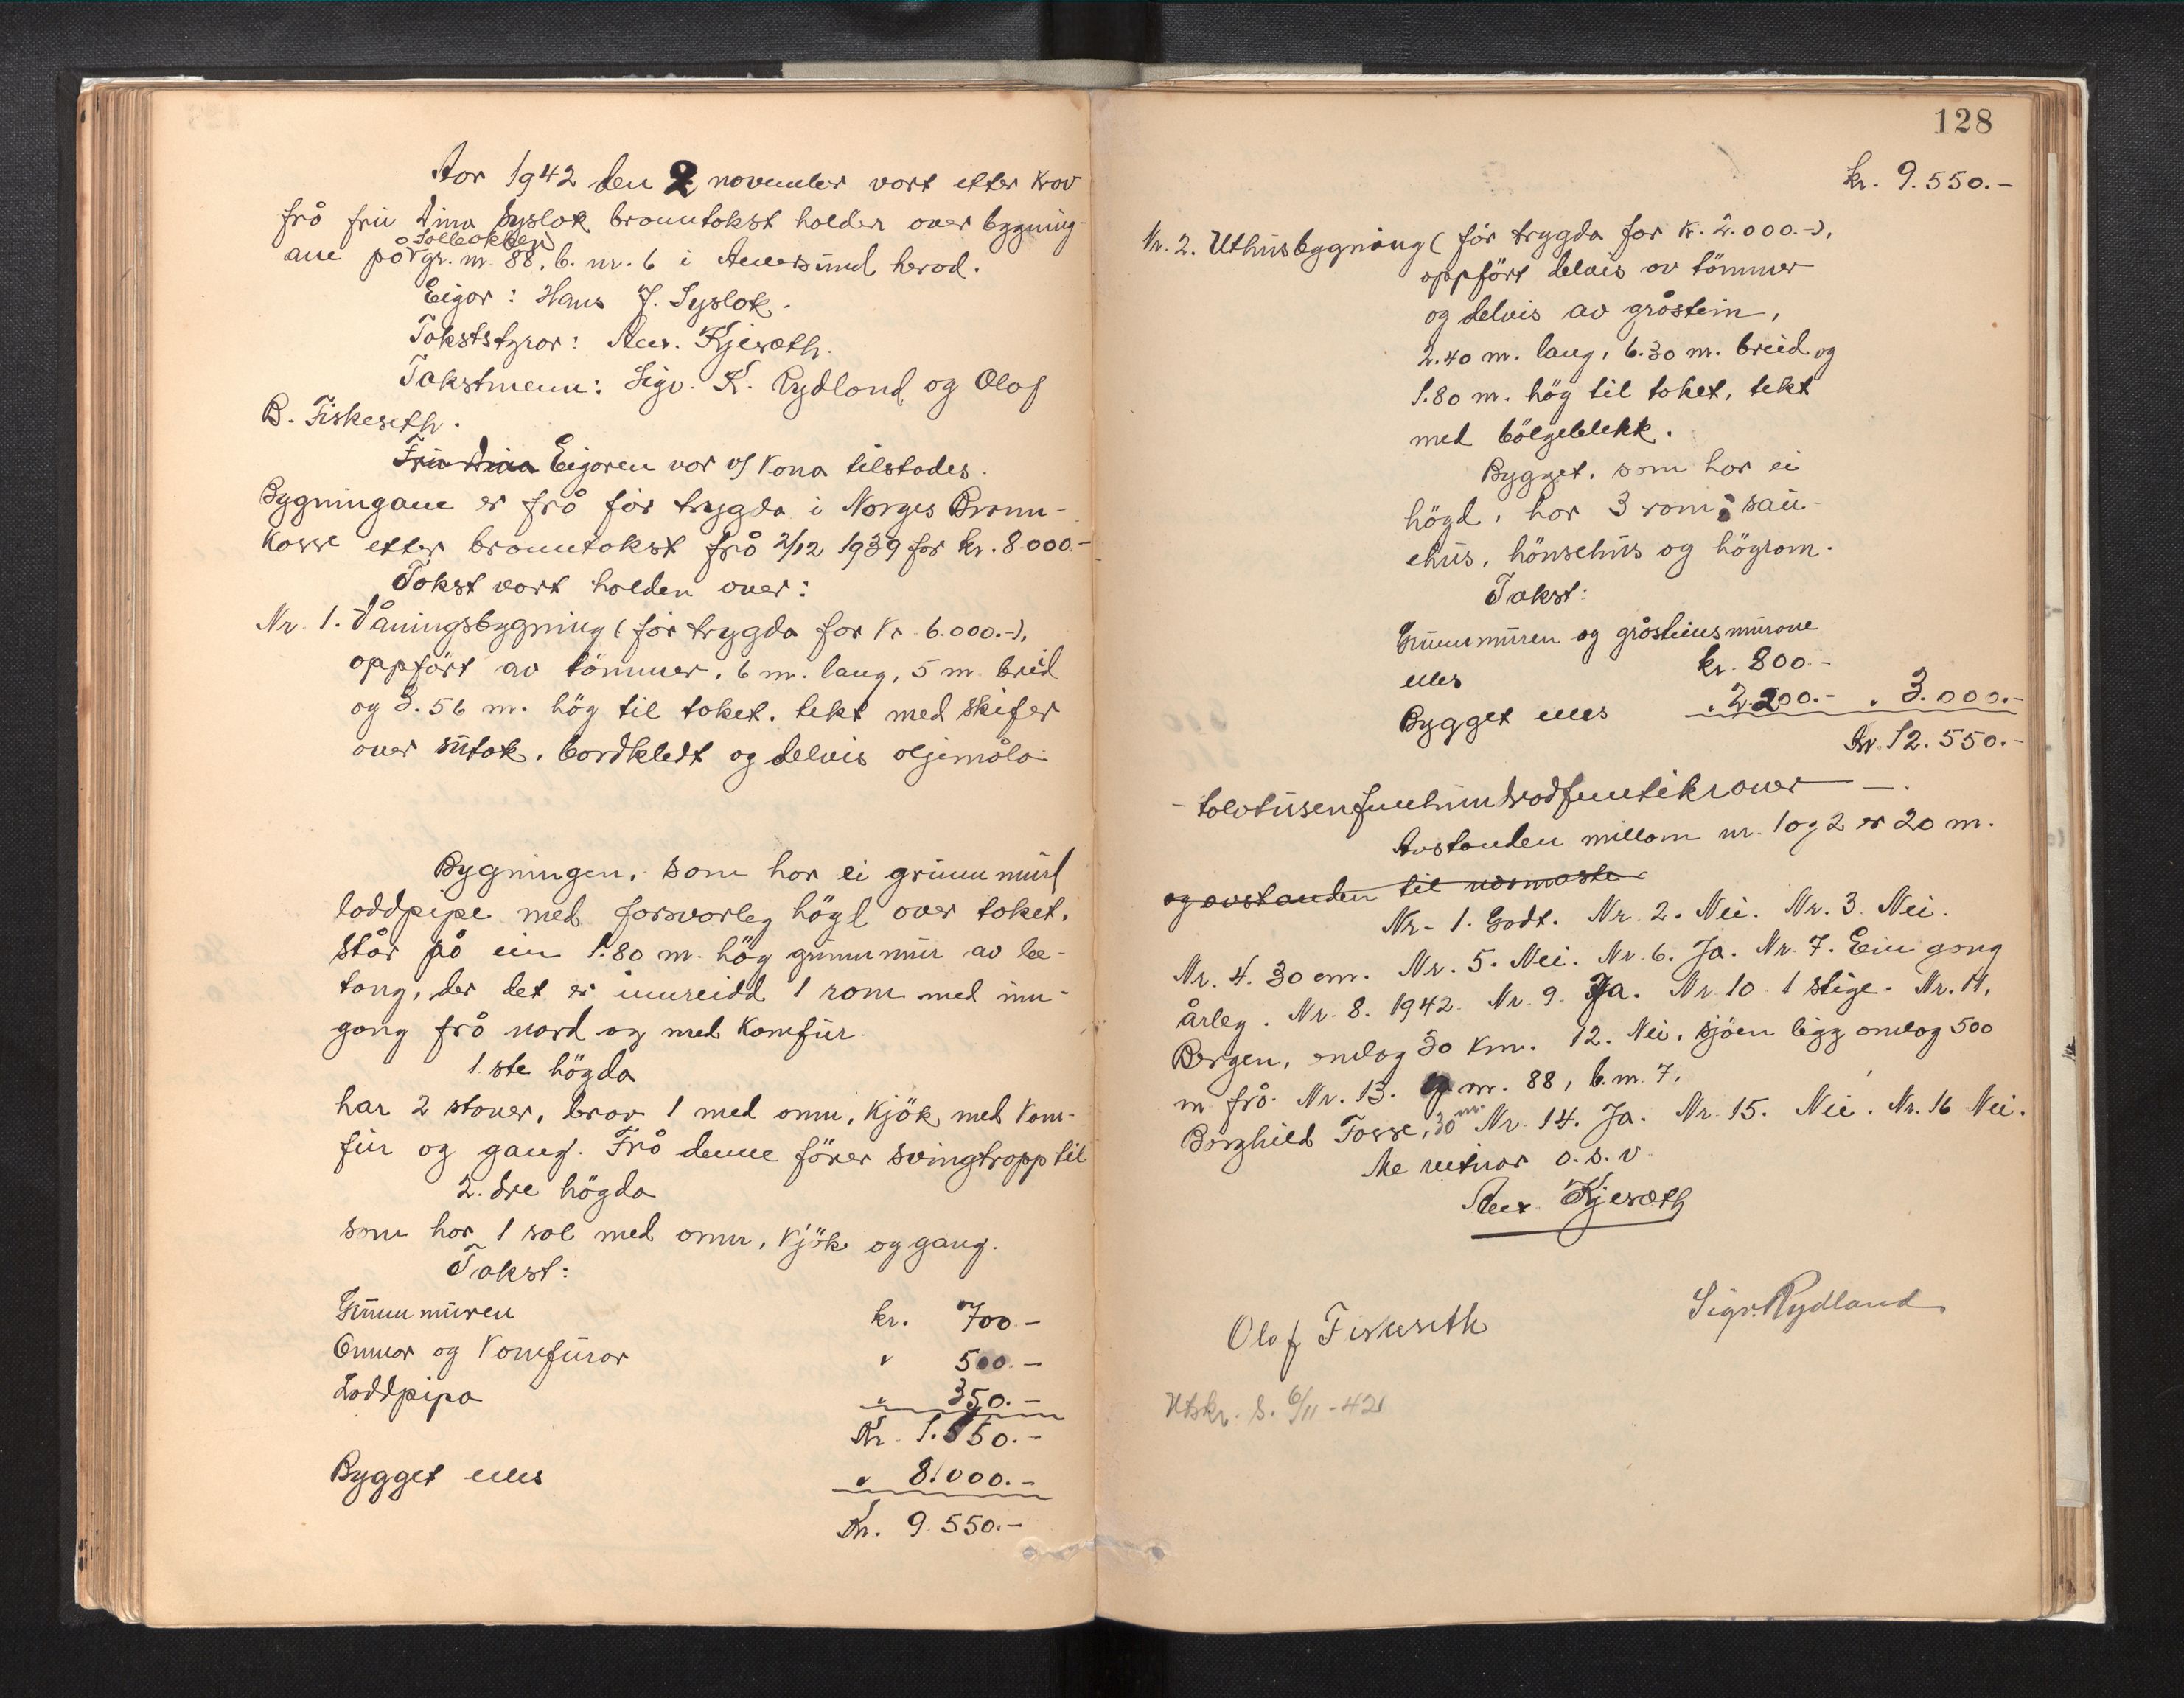 Aar 1942 den 2 november vart etter krav
frå fru Dina Syslak branntakst halden over bygning-
Solbakken
ane på gr. nr. 88, b. nr. 6 i Austevoll herad.
Eigar: Hans J. Syslak.
Takststyrar: And. Kjeræth.
Takstmenn: Sigv. K. Rydland og Olaf
B. Fiskeseth.
Fru Dina Eigaren var v/ kona tilstades.
Bygningane er frå før trygda i Norges Brann-
kasse etter branntakst frå 2/12 1939 for kr. 8.000.-
Takst vart halden over:
Nr. 1. Våningsbygning (før trygda for kr. 6.000.-),
oppført av tømmer, 6 m. lang, 5 m. breid
og 3.56 m. høg til taket, tekt med skifer
over sutak, bordkledt og delvis oljemåla
Bygningen, som har ei grunnmurt
loddpipe med forsvarleg høgd over taket,
står på ein 1.80 m. høg grunnmur av be-
tong, der det er innreidd 1 rom med inn-
gang frå nord og med komfur.
1.ste høgda
har 2 stover, derav 1 med omn, kjøk med kom-
fur og gang. Frå denne fører svingtrapp til
2.dre høgda
som har 1 sal med omn, kjøk og gang.
Takst:
Grunnmuren kr. 700.-
Omnar og komfurar " 500.-
Loddpipa " 350.-
Kr. 1.550.-
Bygget elles " 8.000.-
Kr. 9.550.-
128
kr. 9.550.-
Nr. 2. Uthusbygning (før trygda for kr. 2.000.-),
oppført delvis av tømmer
og delvis av gråstein,
2.40 m. lang, 6.30 m. breid og
1.80 m. høg til taket, tekt
med bølgeblekk.
Bygget, som har ei
høgd, har 3 rom: sau-
ehus, hønsehus og høgrom.
Takst:
Grunnmuren og gråsteinsmurane
elles kr. 800.-
Bygget elles " 2.200.- " 3.000.-
Kr. 12.550.-
- tolvtusenfemhundradfemtikroner -.
Avstanden millom nr. 1 og 2 er 20 m.
og avstanden til næmaste
Nr. 1. Godt. Nr. 2. Nei. Nr. 3. Nei.
Nr. 4. 30 cm. Nr. 5. Nei. Nr. 6. Ja. Nr. 7. Ein gong
årleg. Nr. 8. 1942. Nr. 9. Ja. Nr. 10. 1 stige. Nr. 11,
Bergen, omlag 30 km. 12. Nei, sjøen ligg omlag 500
m frå. Nr. 13. g. nr. 88, b. nr. 7,
Borghild Fosse, 30 m. Nr. 14. Ja. Nr. 15. Nei. Nr. 16 Nei.
Me vitnar o.s.v.
And. Kjeræth
Sigv. Rydland
Olaf Fiskeseth
Utskr. s. 6/11-42